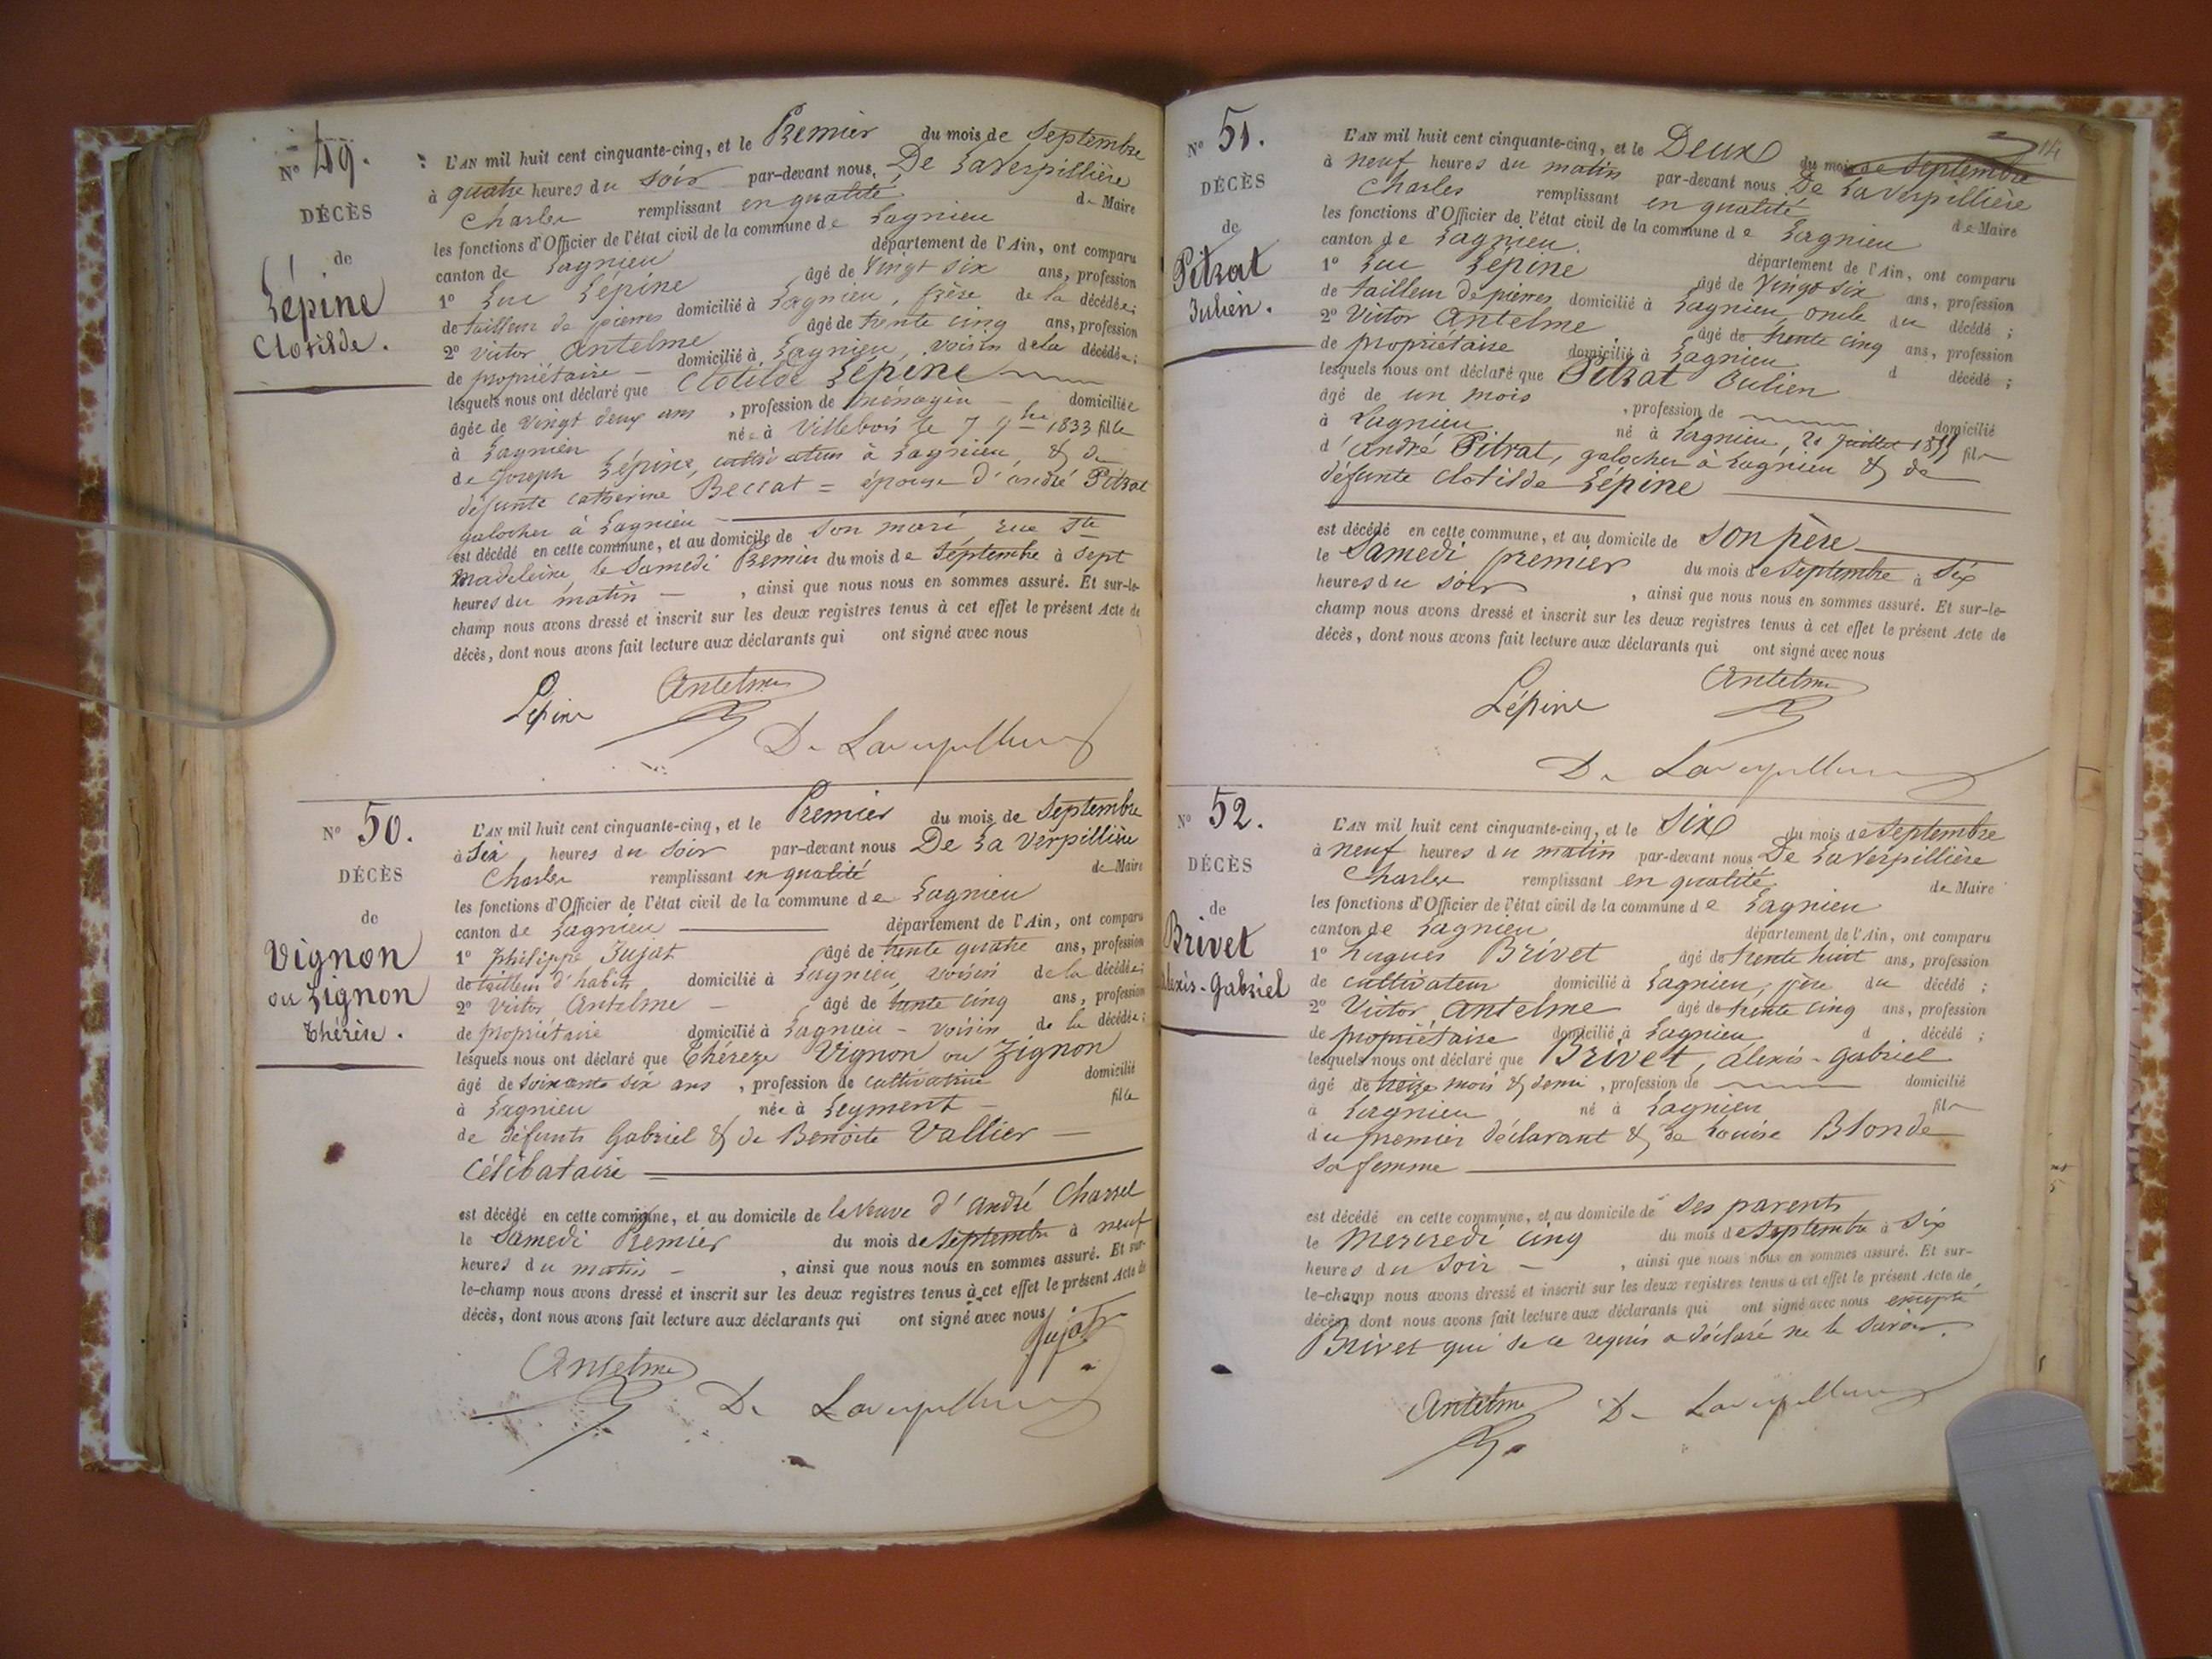 N° 49.
DÉCÈS
de
Lépine
Clotilde.
L'AN mil huit cent cinquante-cinq, et le Premier du mois de Septembre
à quatre heures du soir par-devant nous, De LaVerpillière
Charles remplissant en qualité de Maire
les fonctions d'Officier de l'état civil de la commune de Lagnieu
canton de Lagnieu département de l'Ain, ont comparu
1° Luc Lépine âgé de Vingt six ans, profession
de tailleur de pierres domicilié à Lagnieu, frère de la décédée;
2° Victor Antelme âgé de trente cinq ans, profession
de propriétaire domicilié à Lagnieu, voisin de la décédée;
lesquels nous ont déclaré que Clotilde Lépine
âgée de vingt deux ans, profession de ménagère domiciliée
à Lagnieu née à Villebois le 7 9bre 1833 fille
de Joseph Lépine, cultivateur à Lagnieu & de
défunte Catherine Beccat = épouse d'André Pitrat
galocher à Lagnieu
est décédé en cette commune, et au domicile de son mari, rue Ste
Madeleine, le Samedi Premier du mois de Septembre à sept
heures du matin, ainsi que nous nous en sommes assuré. Et sur-le-
champ nous avons dressé et inscrit sur les deux registres tenus à cet effet le présent Acte de
décès, dont nous avons fait lecture aux déclarants qui ont signé avec nous
Lépine Antelme
De Laverpillière
N° 50.
DÉCÈS
de
Vignon
ou Zignon
Thérèse.
L'AN mil huit cent cinquante-cinq, et le Premier du mois de Septembre
à Six heures du soir par-devant nous De La Verpillière
Charles remplissant en qualité de Maire
les fonctions d'Officier de l'état civil de la commune de Lagnieu
canton de Lagnieu département de l'Ain, ont comparu
1° Philippe Jujat âgé de trente quatre ans, profession
de tailleur d'habits domicilié à Lagnieu, voisin de la décédée;
2° Victor Antelme, âgé de trente cinq ans, profession
de propriétaire domicilié à Lagnieu - voisin de la décédée;
lesquels nous ont déclaré que Thérèze Vignon ou Zignon
âgé de soixante six ans, profession de cultivatrice domicilié
à Lagnieu née à Leyment fille
de défunts Gabriel & de Benoite Vallier
Célibataire
est décédé en cette commune, et au domicile de la Veuve d'André Charrel
le Samedi Premier du mois de Septembre à neuf
heures du matin, ainsi que nous nous en sommes assuré. Et sur-
le-champ nous avons dressé et inscrit sur les deux registres tenus à cet effet le présent Acte de
décès, dont nous avons fait lecture aux déclarants qui ont signé avec nous
Jujat
Antelme De Laverpillière
114
N° 51.
DÉCÈS
de
Pitrat
Julien.
L'AN mil huit cent cinquante-cinq, et le Deux du mois de Septembre
à neuf heures du matin par-devant nous De LaVerpillière
Charles remplissant en qualité de Maire
les fonctions d'Officier de l'état civil de la commune de Lagnieu
canton de Lagnieu département de l'Ain, ont comparu
1° Luc Lépine âgé de Vingt six ans, profession
de tailleur de pierres domicilié à Lagnieu, oncle du décédé;
2° Victor Antelme, âgé de trente cinq ans, profession
de propriétaire domicilié à Lagnieu d décédé;
lesquels nous ont déclaré que Pitrat Julien
âgé de un mois, profession de domicilié
à Lagnieu né à Lagnieu, 21 Juillet 1855 fils
d'André Pitrat, galocher à Lagnieu & de
défunte Clotilde Lépine
est décédé en cette commune, et au domicile de son père
le Samedi premier du mois de Septembre à Six
heures du soir, ainsi que nous nous en sommes assuré. Et sur-le-
champ nous avons dressé et inscrit sur les deux registres tenus à cet effet le présent Acte de
décès, dont nous avons fait lecture aux déclarants qui ont signé avec nous
Lépine Antelme
De Laverpillière
N° 52.
DÉCÈS
de
Brivet
Alexis-Gabriel
L'AN mil huit cent cinquante-cinq, et le Six du mois de Septembre
à neuf heures du matin par-devant nous De LaVerpillière
Charles remplissant en qualité de Maire
les fonctions d'Officier de l'état civil de la commune de Lagnieu
canton de Lagnieu département de l'Ain, ont comparu
1° hugues Brivet âgé de trente huit ans, profession
de cultivateur domicilié à Lagnieu, père du décédé;
2° Victor Antelme âgé de trente cinq ans, profession
de propriétaire domicilié à Lagnieu d décédé;
lesquels nous ont déclaré que Brivet, Alexis-Gabriel
âgé de treize mois & demi, profession de domicilié
à Lagnieu né à Lagnieu fils
du premier déclarant & de Louise Blonde
sa femme
est décédé en cette commune, et au domicile de ses parents
le Mercredi cinq du mois de Septembre à Six
heures du Soir, ainsi que nous nous en sommes assuré. Et sur-
le-champ nous avons dressé et inscrit sur les deux registres tenus à cet effet le présent Acte de
décès, dont nous avons fait lecture aux déclarants qui ont signé avec nous excepté
Brivet qui de ce requis a déclaré ne le savoir.
Antelme De Laverpillière